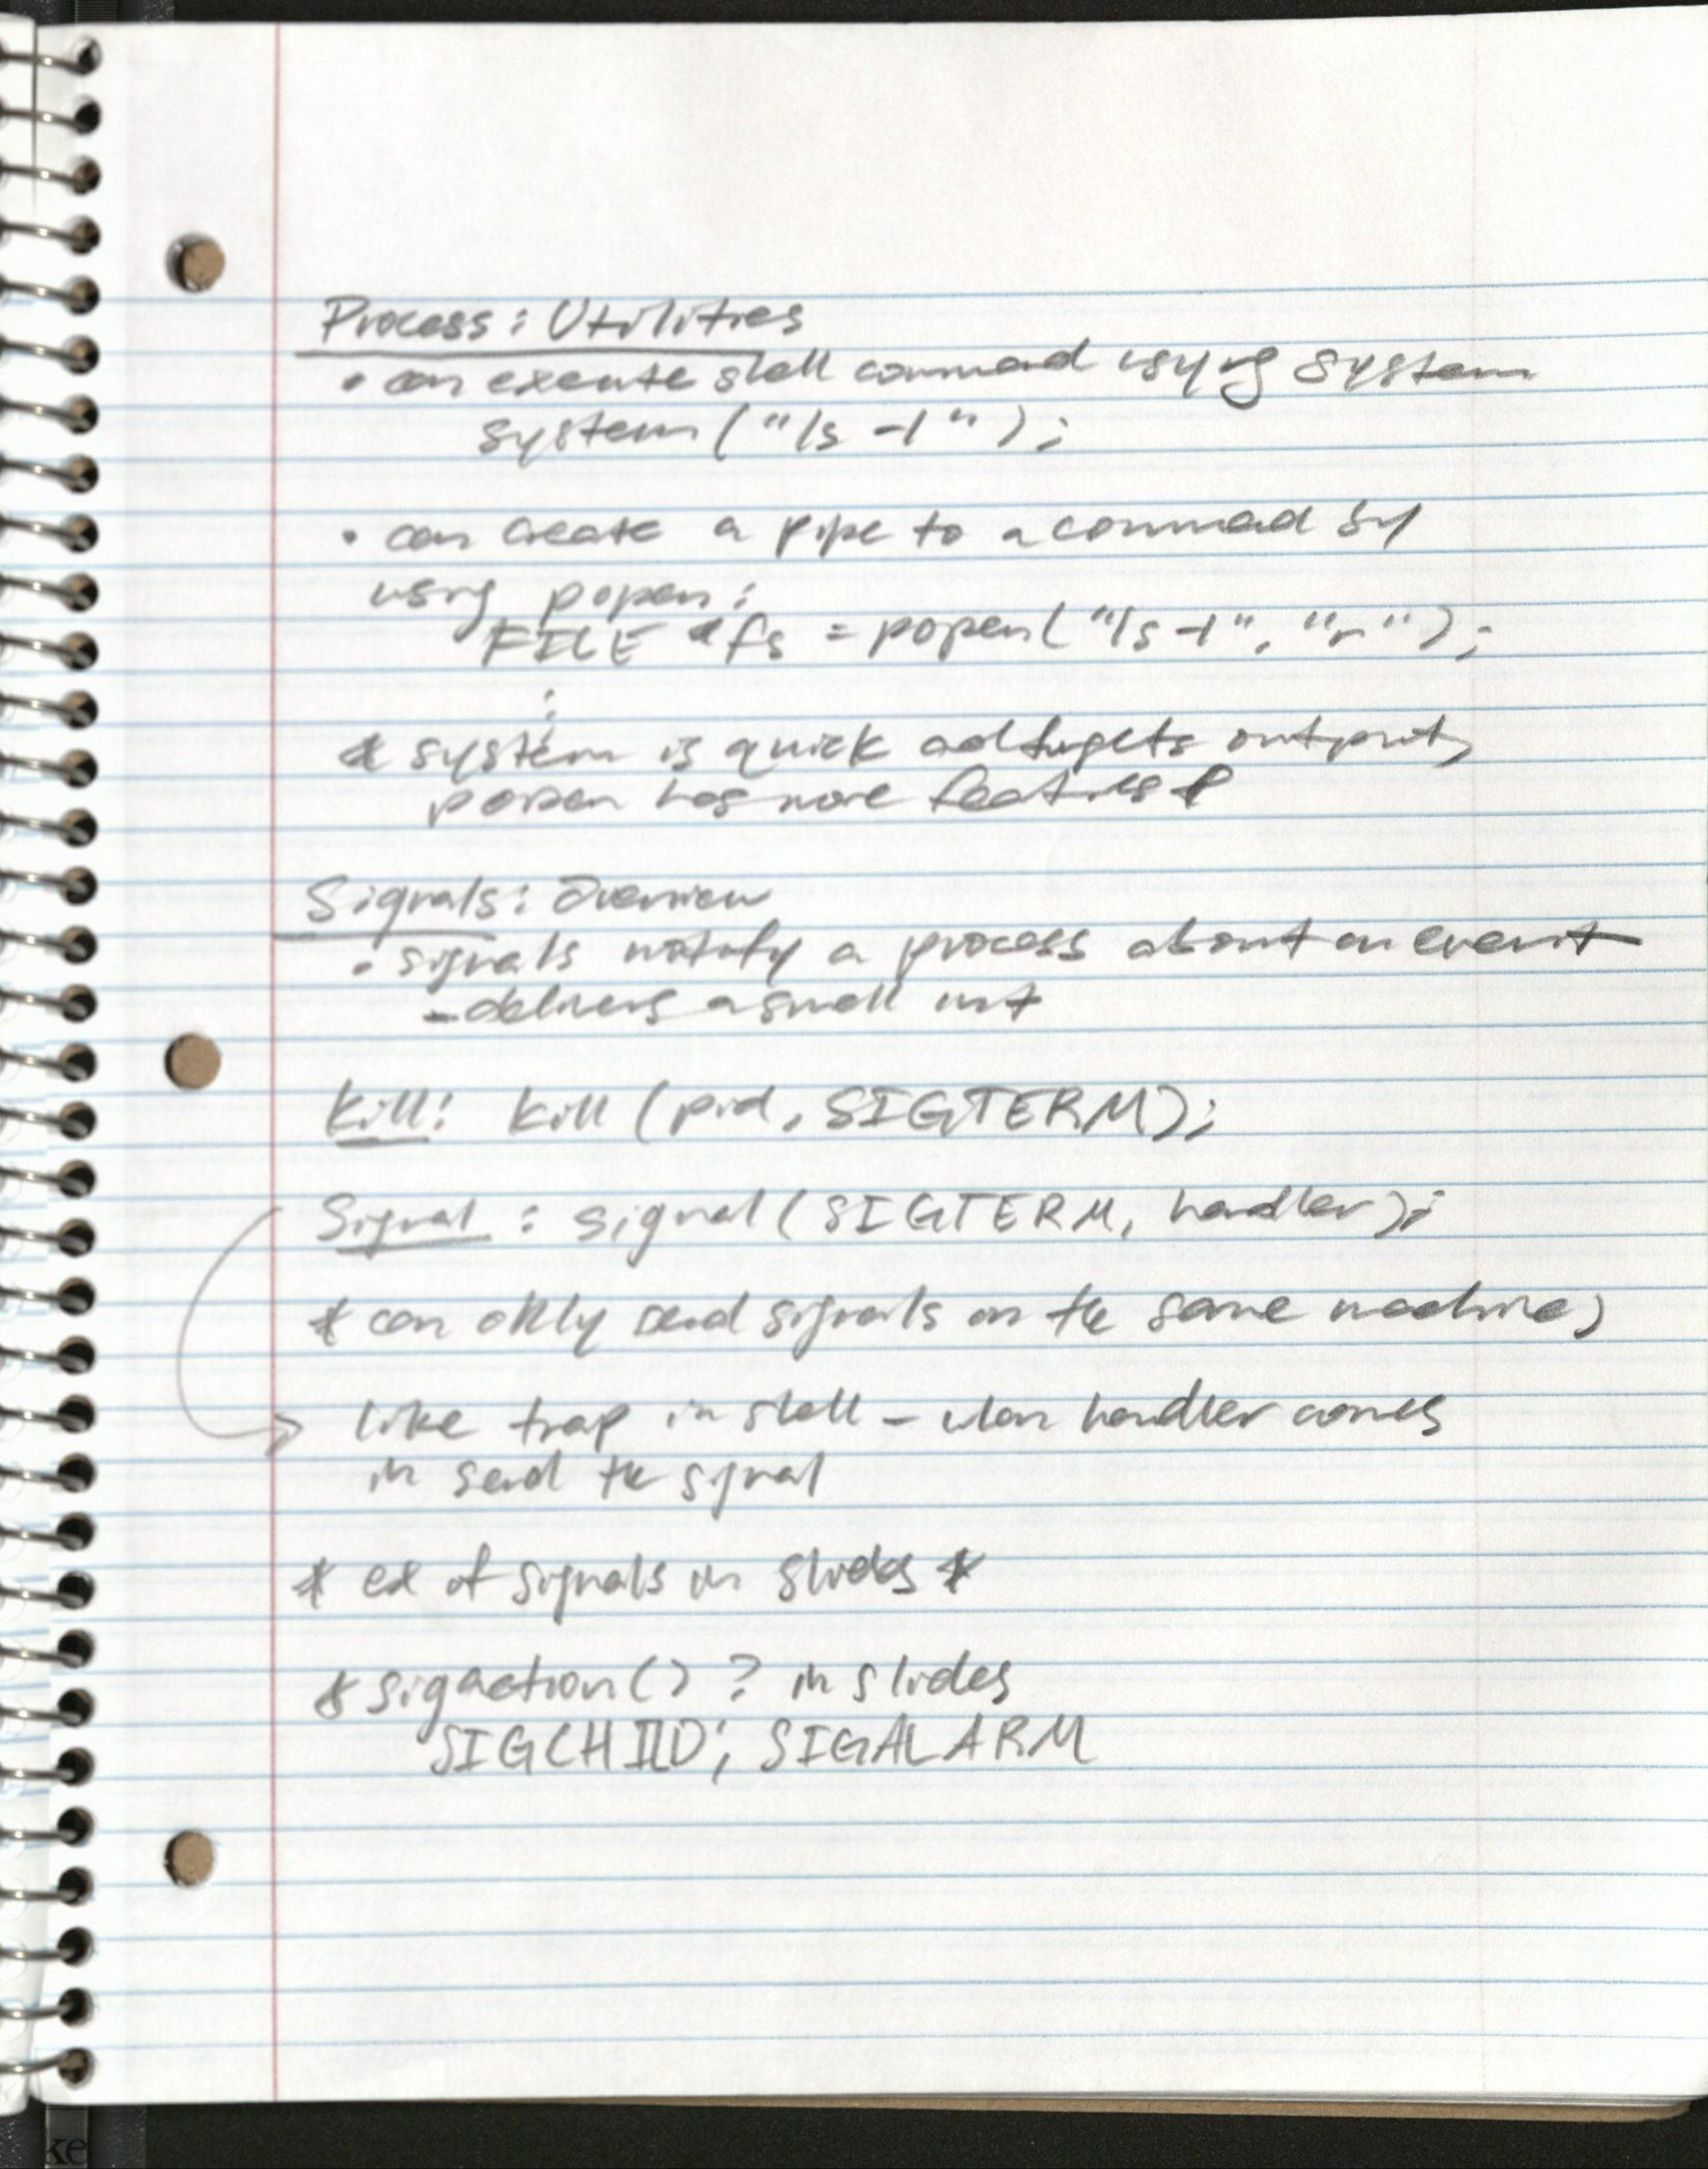 Process: Utilities
• can execute shell command using system
system("ls -l");
• can create a pipe to a command by
using popen:
FILE *fs = popen("ls -l", "r");
:
* system is quick and forgets output,
popen has more features *
Signals: Overview
• signals notify a process about an event
- delivers a small int
Kill: kill (pid, SIGTERM);
Signal: signal(SIGTERM, handler);
* can only send signals on the same machine,
→ like trap in shell - when handler comes
in send the signal
* ex of signals in slides *
* sigaction() ? in slides
SIGCHILD; SIGALARM
ke